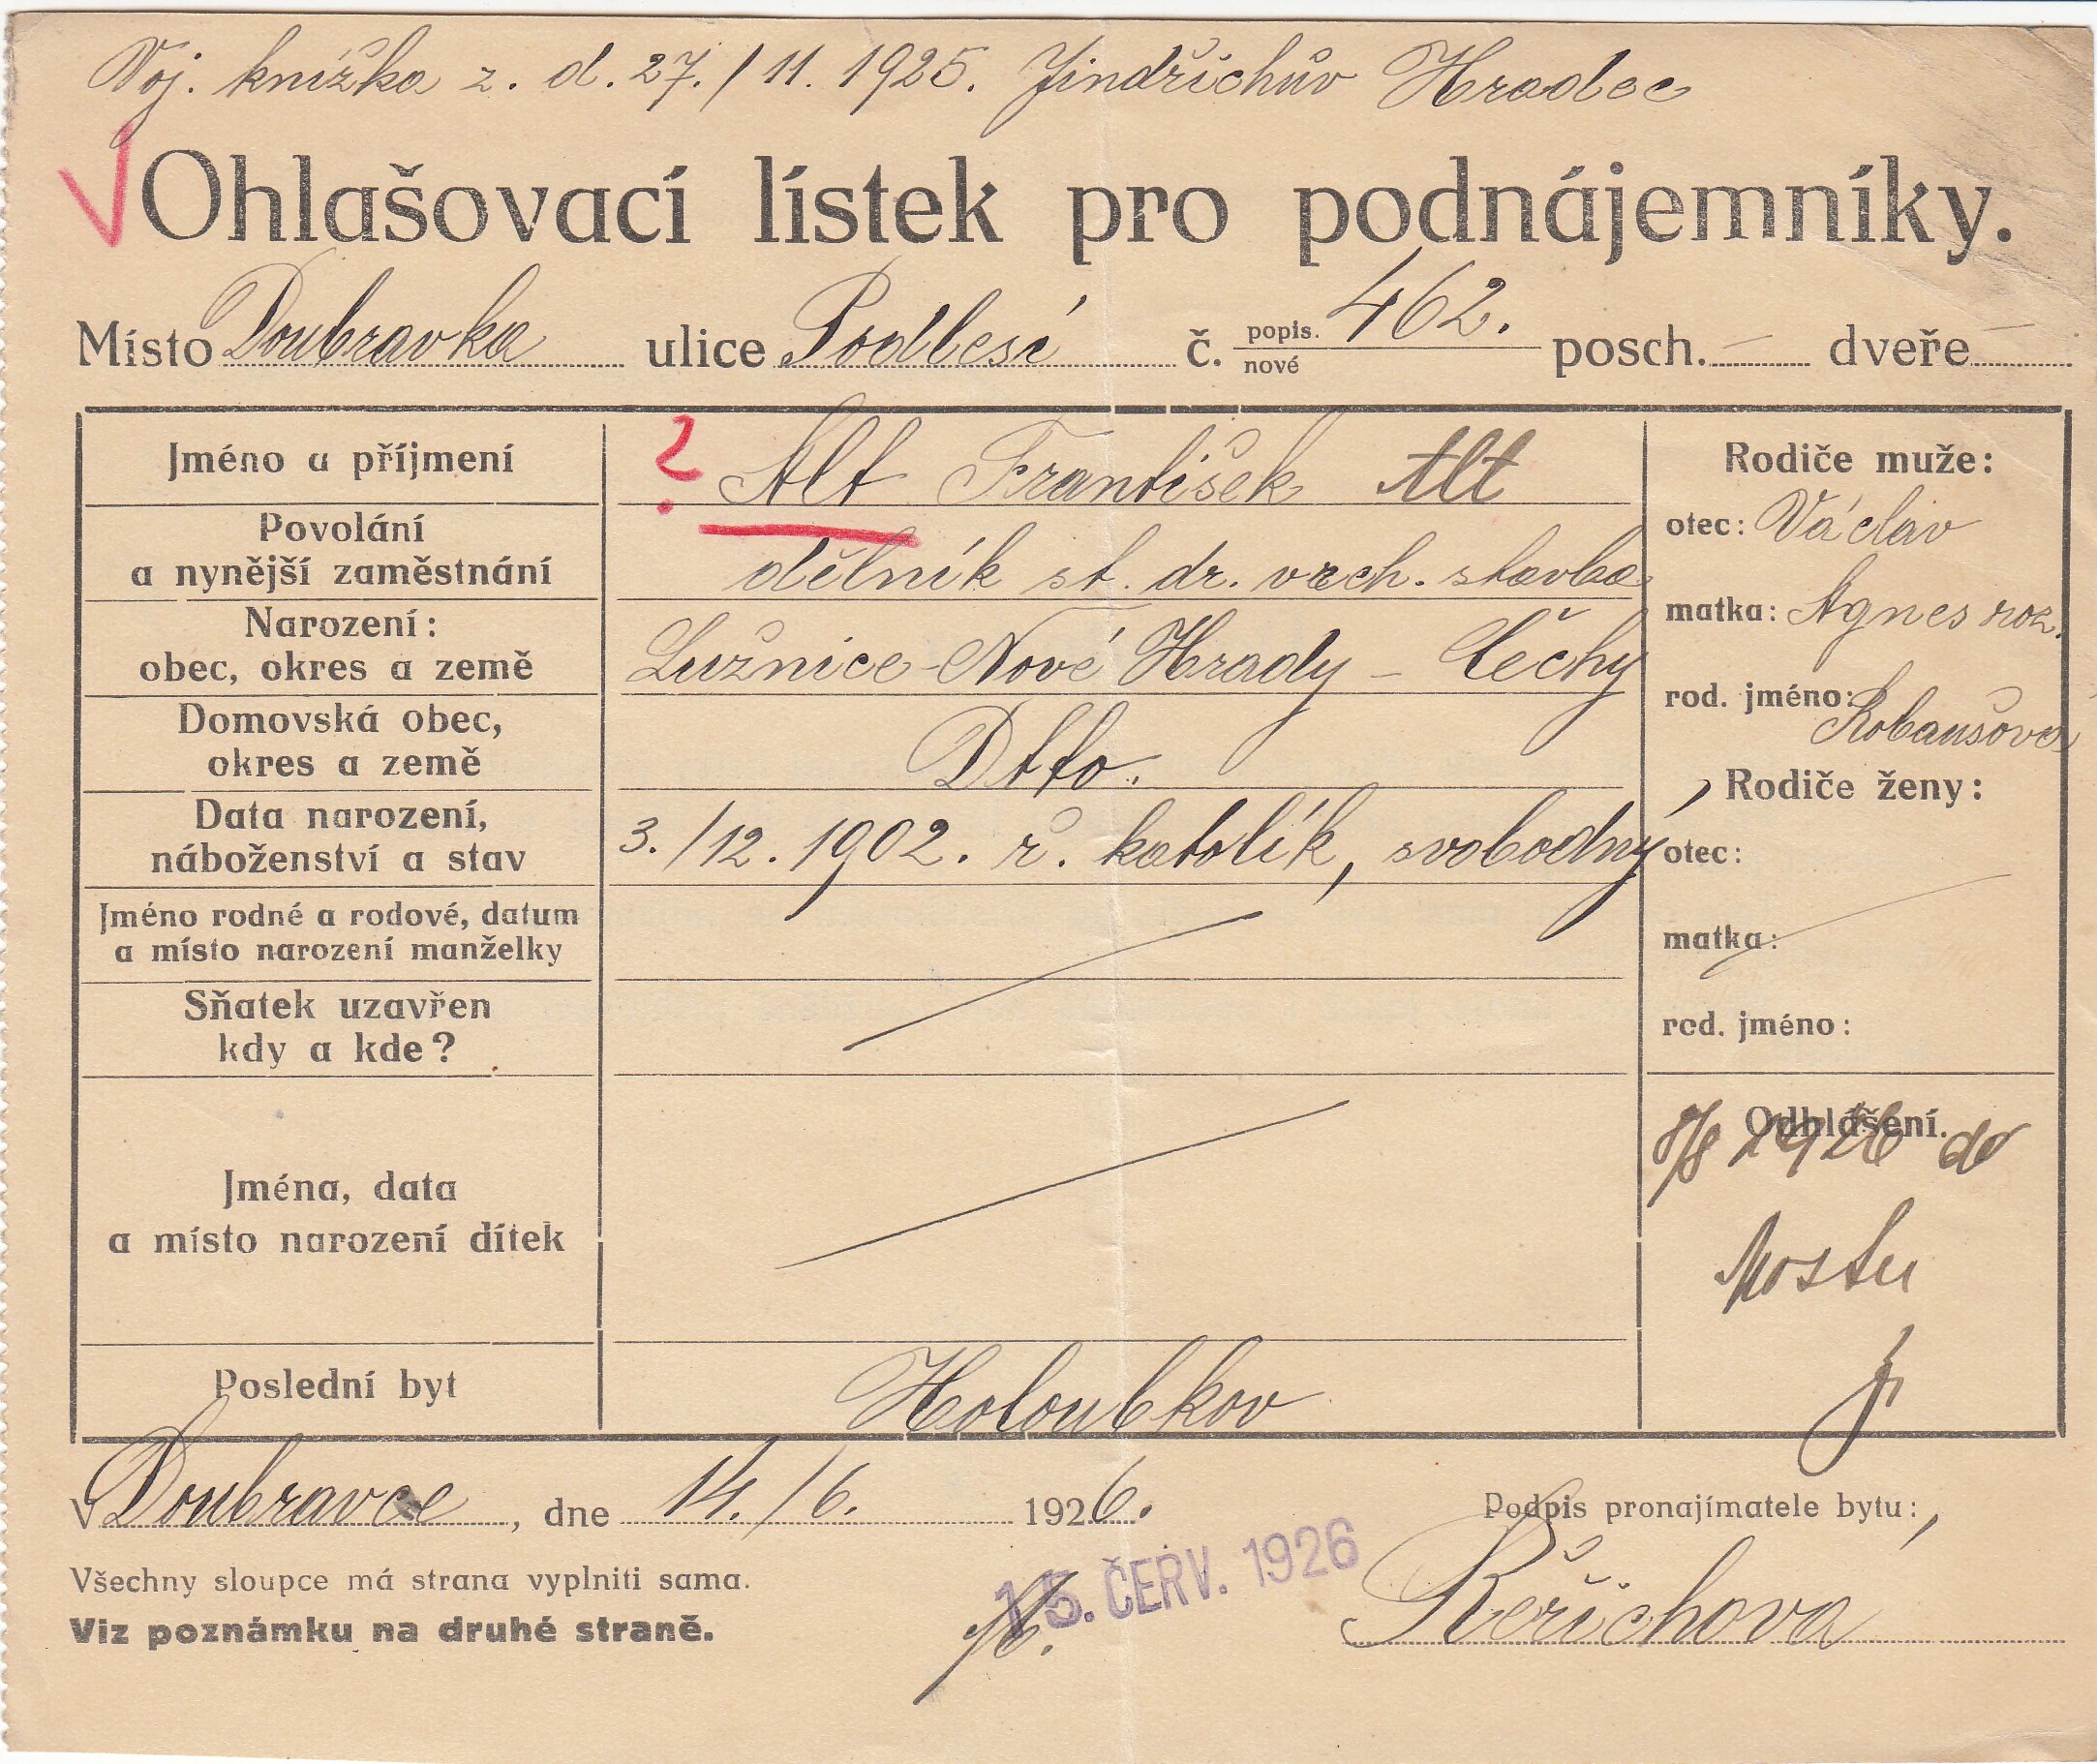 Voj. knížka z. d. 27./11. 1925. Jindřichův Hradec
Ohlašovací lístek pro podnájemníky.
Místo Doubravka ulice Podlesí č. popis. 462. posch. — dveře —
nové
Jméno a příjmení
? Alt František Alt
Povolání
a nynější zaměstnání
dělník st. dr. vrch. stavba
Narození:
obec, okres a země
Lužnice - Nové Hrady - Čechy
Domovská obec,
okres a země
Dtto.
Data narození,
náboženství a stav
3./12. 1902. ř. katolík, svobodný
Jméno rodné a rodové, datum
a místo narození manželky
Sňatek uzavřen
kdy a kde?
Jména, data
a místo narození dítek
Poslední byt
Holoubkov
Rodiče muže:
otec: Václav
matka: Agnes roz.
rod. jméno:
Rodiče ženy:
otec:
matka:
rod. jméno:
Odhlášení.
8/8 1926 do
Mostu
V Doubravce, dne 14./6. 1926.
Podpis pronajímatele bytu:
Všechny sloupce má strana vyplniti sama.
Viz poznámku na druhé straně.
15. ČERV. 1926
Řeřichova